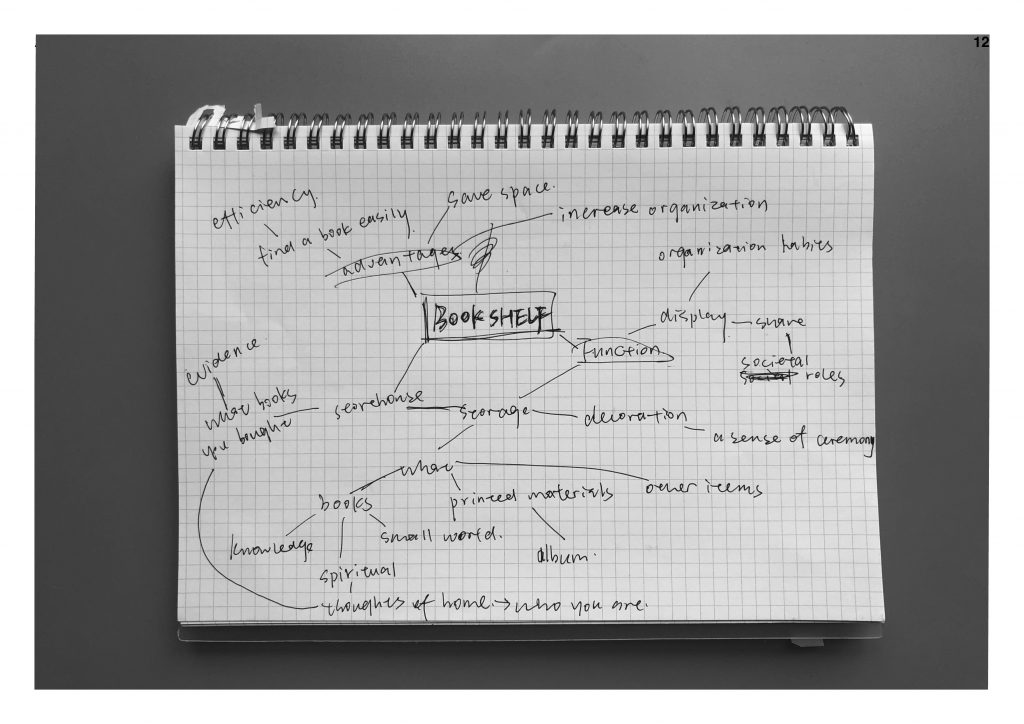 12
efficiency.
save space.
find a book easily
increase organization
advantages
organization habies
BOOKSHELF
display
share
Function
societal
roles
evidence
what books
you bought
storehouse
storage
decoration
a sense of ceremony
what
books
printed materials
other items
knowledge
small world.
album.
spiritual
thoughts of home. → who you are.